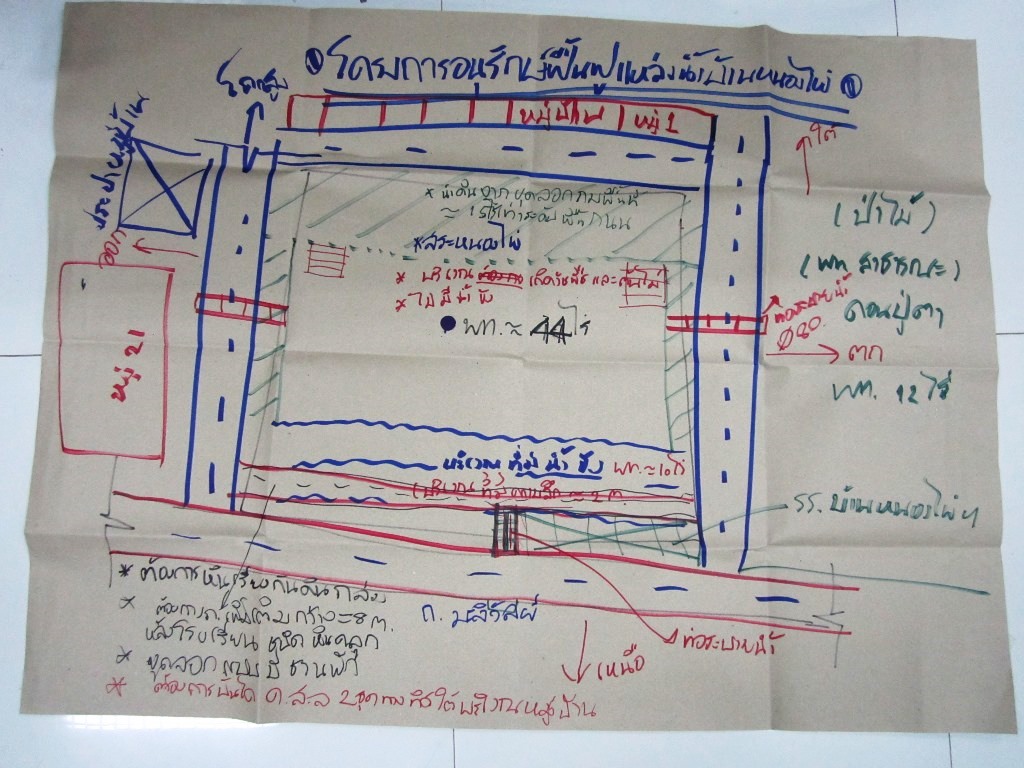 โครงการอนุรักษ์ฟื้นฟูแหล่งน้ำบ้านหนองไผ่
หมู่บ้าน หมู่ 1
ใต้
ประปาหมู่บ้าน
ออก
* นำดินจาก ขุดลอกถมพื้นที่
* สระหนองไผ่
* บริเวณ
* ไม่มีน้ำขัง
พท. ≈ 44 ไร่
(ป่าไม้)
(พท สาธารณะ)
ดอนปู่ตา
พท. 12 ไร่
ท่อระบายน้ำ
Ø 80.
ตก
หมู่ 21
บริเวณ ที่มี น้ำ ขัง พท. ≈
รร. บ้านหนองไผ่ฯ
* ต้องการหินเรียงกันดิน
หลังโรงเรียน
* ขุดลอกแบบมีชานพัก
* ต้องการบันได ค.ส.ล
ถ. มลิวัลย์
เหนือ
ท่อระบายน้ำ